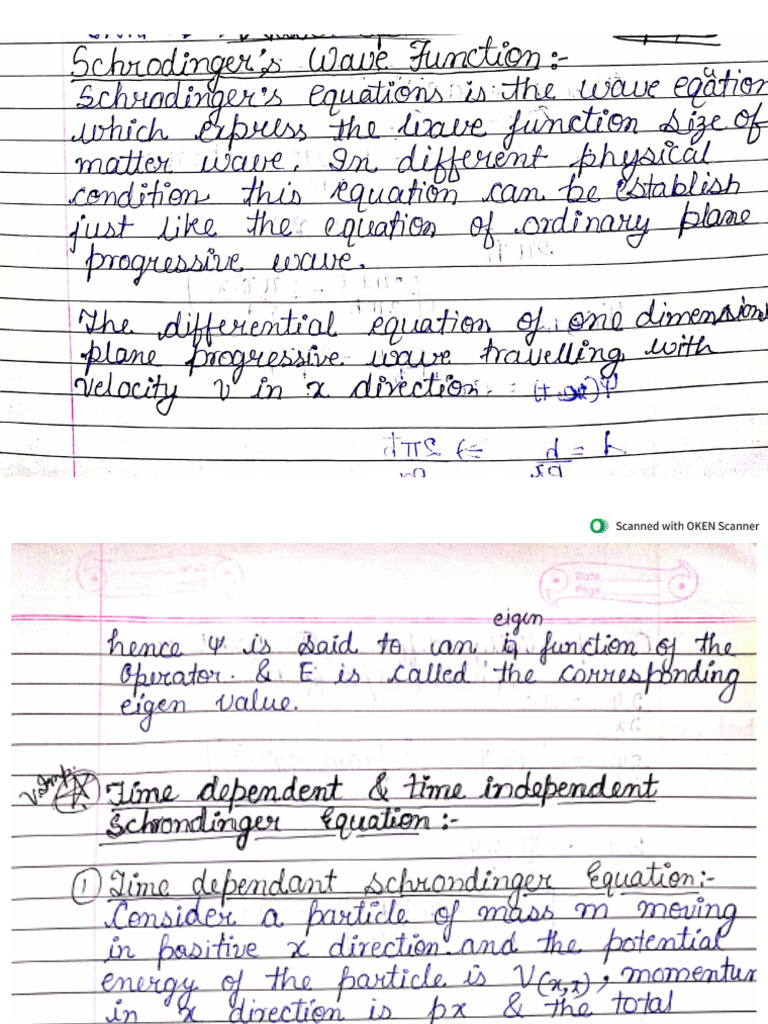 Schrodinger's Wave Function :-
Schrodinger's equations is the wave eqation
which express the wave function size of
matter wave. In different physical
condition this equation can be establish
just like the equation of ordinary plane
progressive wave.
The differential equation of one dimension
plane progressive wave travelling with
velocity v in x direction.
Scanned with OKEN Scanner
eigen
hence ψ is said to can function of the
operator. & E is called the corresponding
eigen value.
V. Imp.
Time dependent & time independent
Schrondinger Equation :-
① Time dependant schrondinger Equation:-
Consider a particle of mass m moving
in positive x direction and the potential
energy of the particle is V(x,x), momentum
in x direction is px & the total